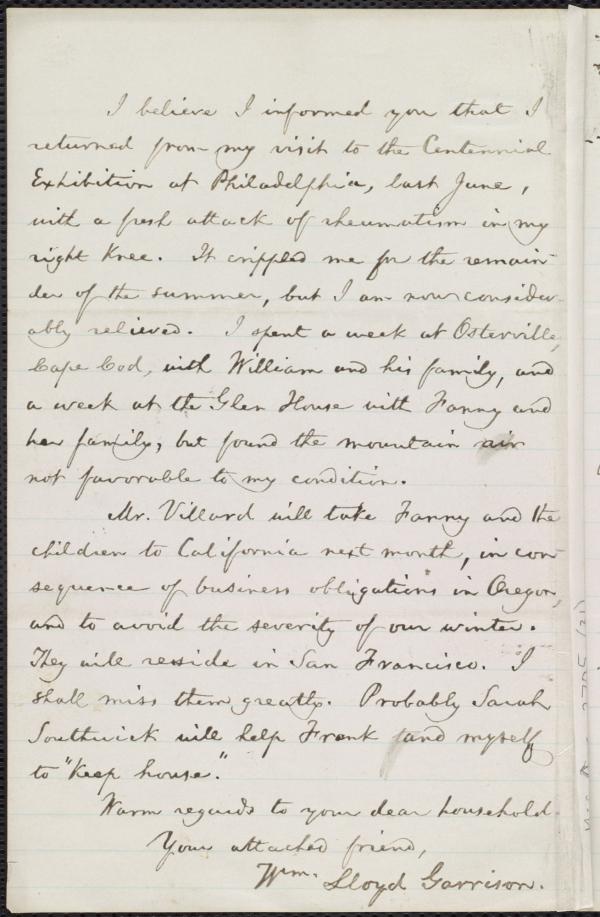 I believe I informed you that I
returned from my visit to the Centennial
Exhibition at Philadelphia, last June,
with a fresh attack of rheumatism in my
right knee. It crippled me for the remain-
der of the summer, but I am now consider-
ably relieved. I spent a week at Osterville,
Cape Cod, with William and his family, and
a week at the Glen House with Fanny and
her family, but found the mountain air
not favorable to my condition.
Mr. Villard will take Fanny and the
children to California next month, in con-
sequence of business obligations in Oregon,
and to avoid the severity of our winter.
They will reside in San Francisco. I
shall miss them greatly. Probably Sarah
Southwick will help Frank and myself
to "keep house."
Warm regards to your dear household.
Your attached friend,
Wm. Lloyd Garrison.